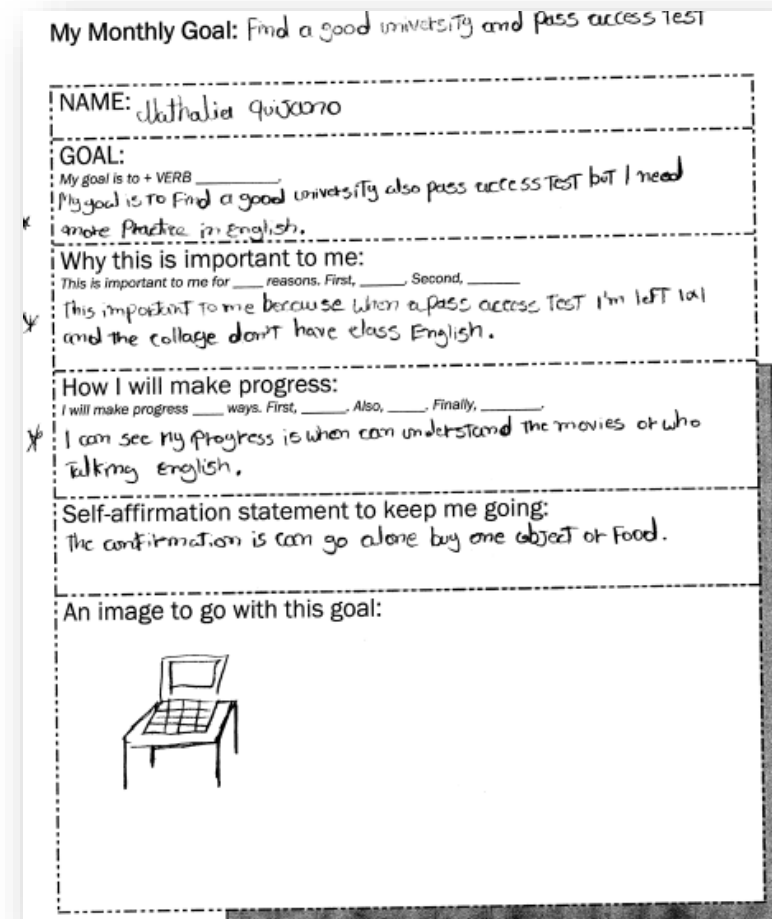 My Monthly Goal: Find a good university and pass access Test
NAME: Nathalia Quijano
GOAL:
My goal is to + VERB ____________.
My goal is To Find a good university also pass access TesT buT I need
more Practice in English.
Why this is important to me:
This is important to me for ____ reasons. First, ______, Second, _______
This important To me because when a pass access TesT I'm lefT
and the collage don'T have class English.
How I will make progress:
I will make progress ____ ways. First, ______. Also, _____. Finally, ________.
I can see my Progress is when can understand the movies or who
Talking English.
Self-affirmation statement to keep me going:
The confirmation is can go alone buy one objecT or Food.
An image to go with this goal: